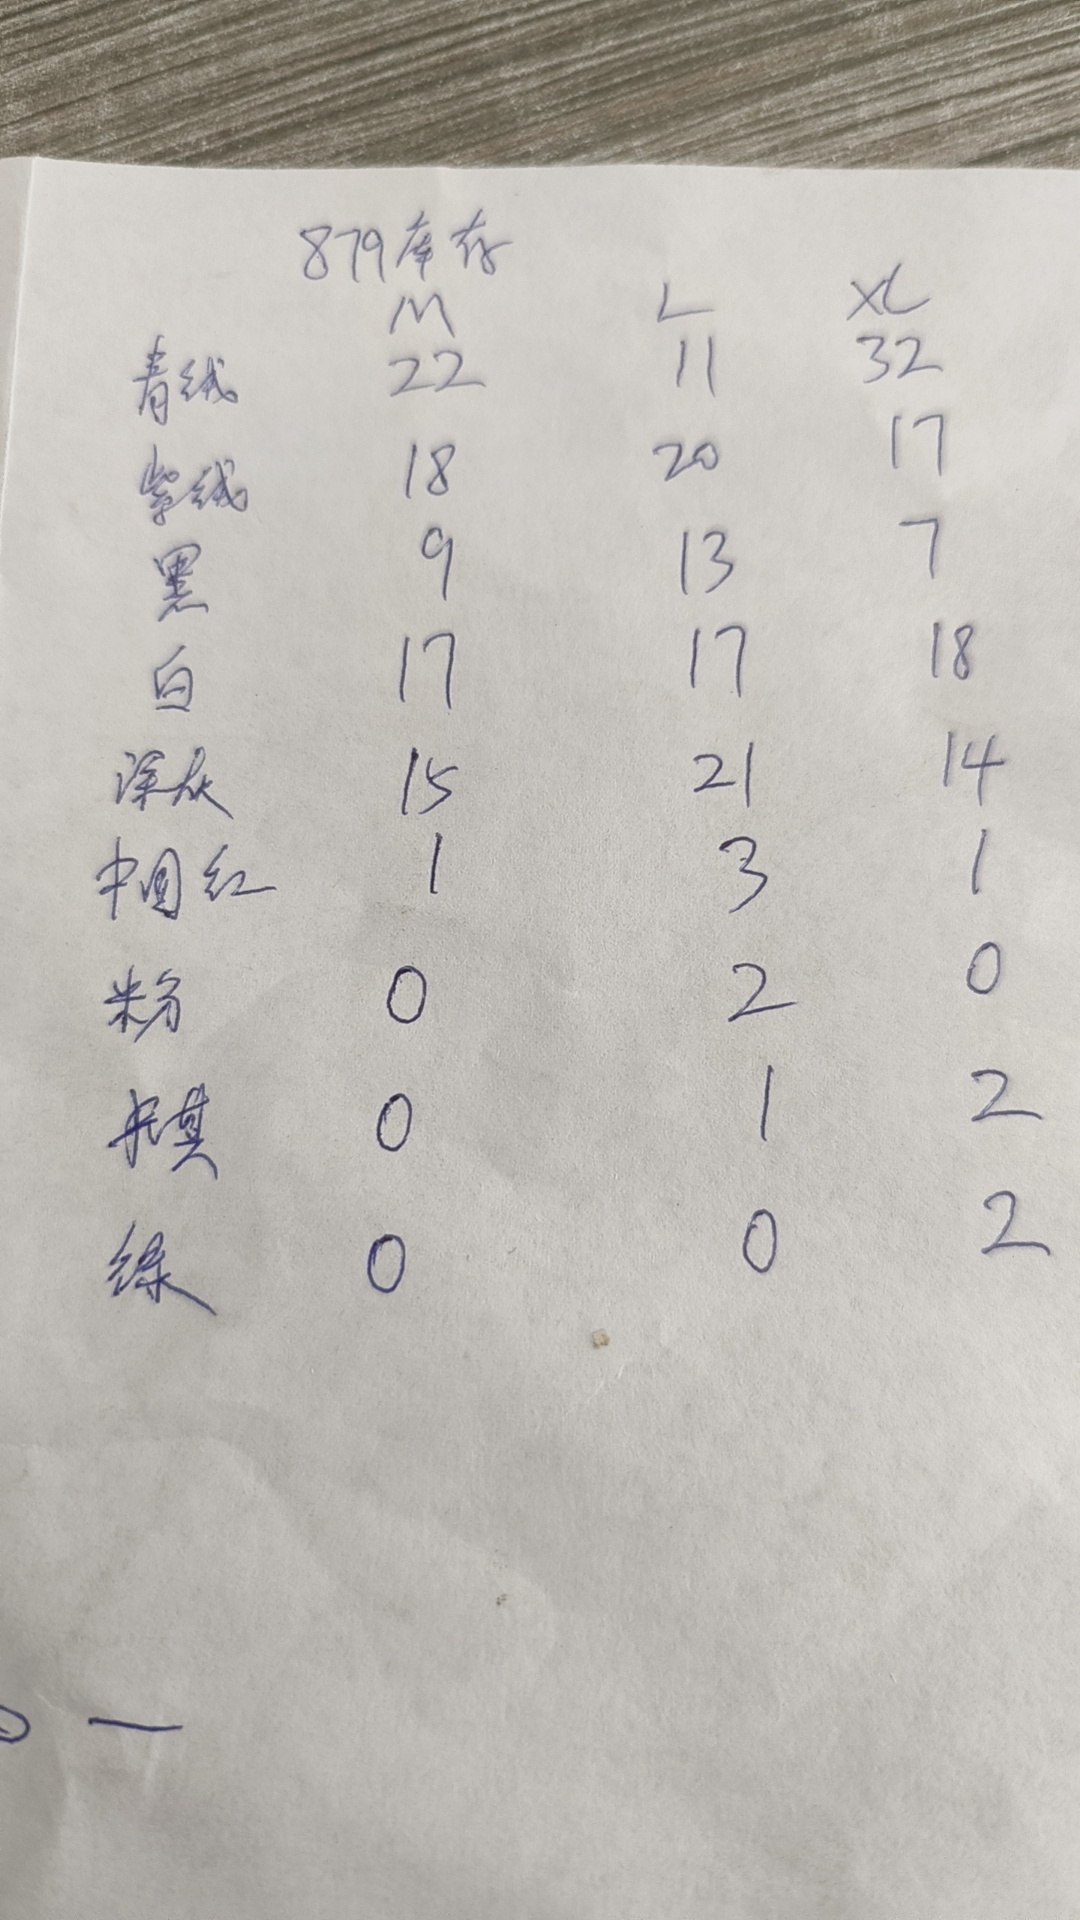 879库存
M L XL
青绒 22 11 32
紫绒 18 20 17
黑 9 13 7
白 17 17 18
深灰 15 21 14
中国红 1 3 1
粉 0 2 0
0 1 2
0 0 2